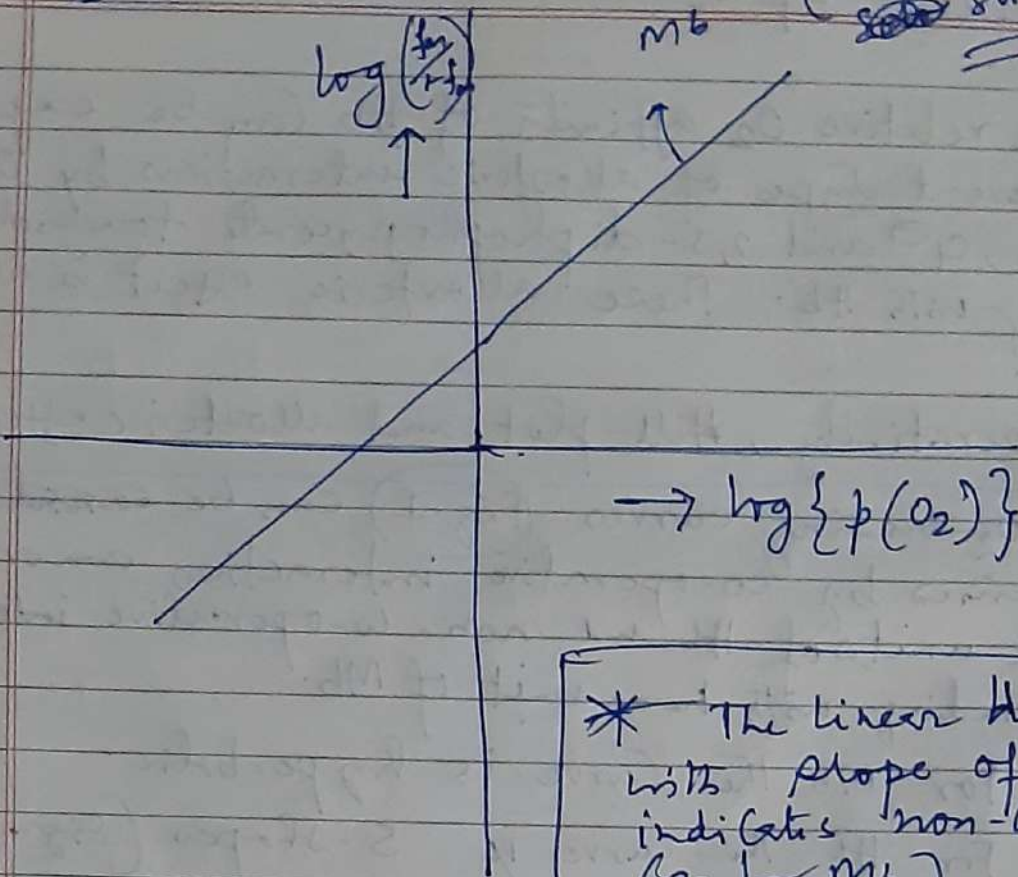 Mb
log (fm/1-fm)
↑
→ log{p(O2)}
* The linear H
with slope of
indicates non-